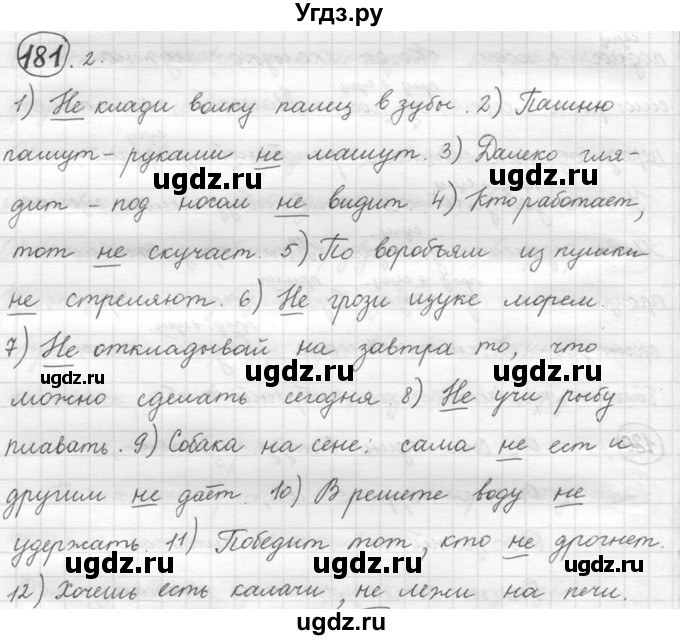 Угдз.ру
181. 2.
1) Не клади волку палец в зубы. 2) Пашню
пашут - руками не машут. 3) Далеко гля-
дит - под носом не видит. 4) Кто работает,
тот не скучает. 5) По воробьям из пушки
не стреляют. 6) Не грози щуке морем.
7) Не откладывай на завтра то, что
можно сделать сегодня 8) Не учи рыбу
плавать. 9) Собака на сене: сама не ест и
другим не даёт. 10) В решете воду не
удержать. 11) Победит тот, кто не дрогнет.
12) Хочешь есть калачи, не лежи на печи.
ugdz.ru
ugdz.ru
ugdz.ru
ugdz.ru
ugdz.ru
ugdz.ru
ugdz.ru
ugdz.ru
ugdz.ru
ugdz.ru
ugdz.ru
ugdz.ru
ugdz.ru